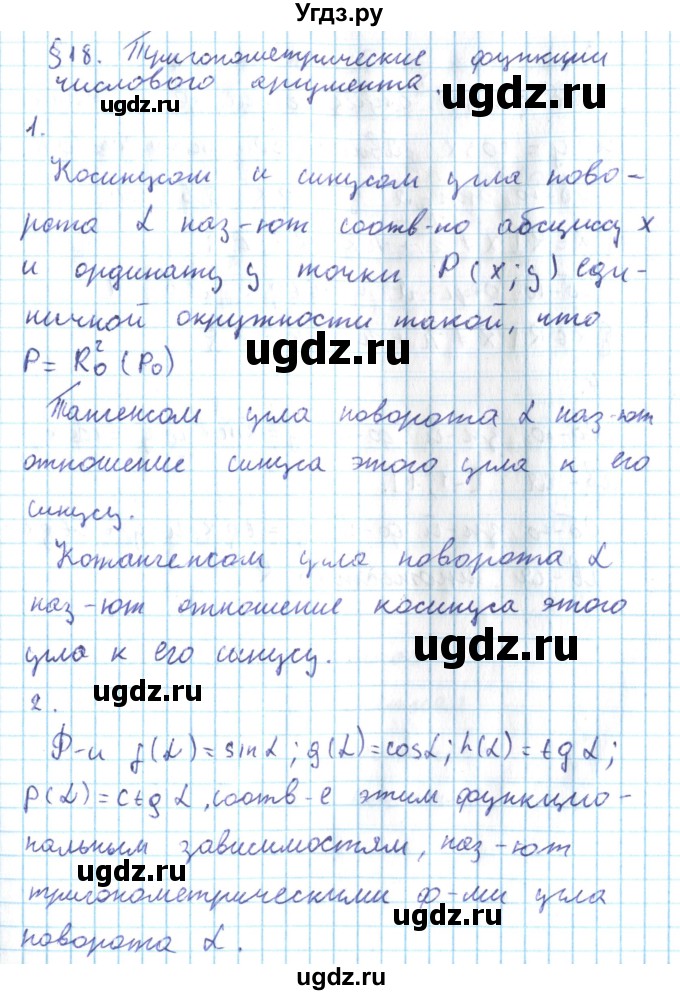 Угдз.ру
§18. Тригонометрические функции
числового аргумента.
ugdz.ru ugdz.ru
1.
ugdz.ru
Косинусом и синусом угла пово-
рота α наз-ют соотв-но абсциссу x
и ординату y точки P(x;y) еди-
ничной окружности такой, что
P = R₀² (P₀)
ugdz.ru
Тангенсом угла поворота α наз-ют
отношение синуса этого угла к его
синусу.
ugdz.ru
Котангенсом угла поворота α
наз-ют отношение косинуса этого
угла к его синусу.
ugdz.ru
ugdz.ru
2.
Ф-и f(α)=sinα; g(α)=cosα; h(α)=tgα;
p(α)=ctgα, соотв-е этим функцио-
ugdz.ru
нальным зависимостям, наз-ют
тригонометрическими ф-ми угла
поворота α.
ugdz.ru
ugdz.ru